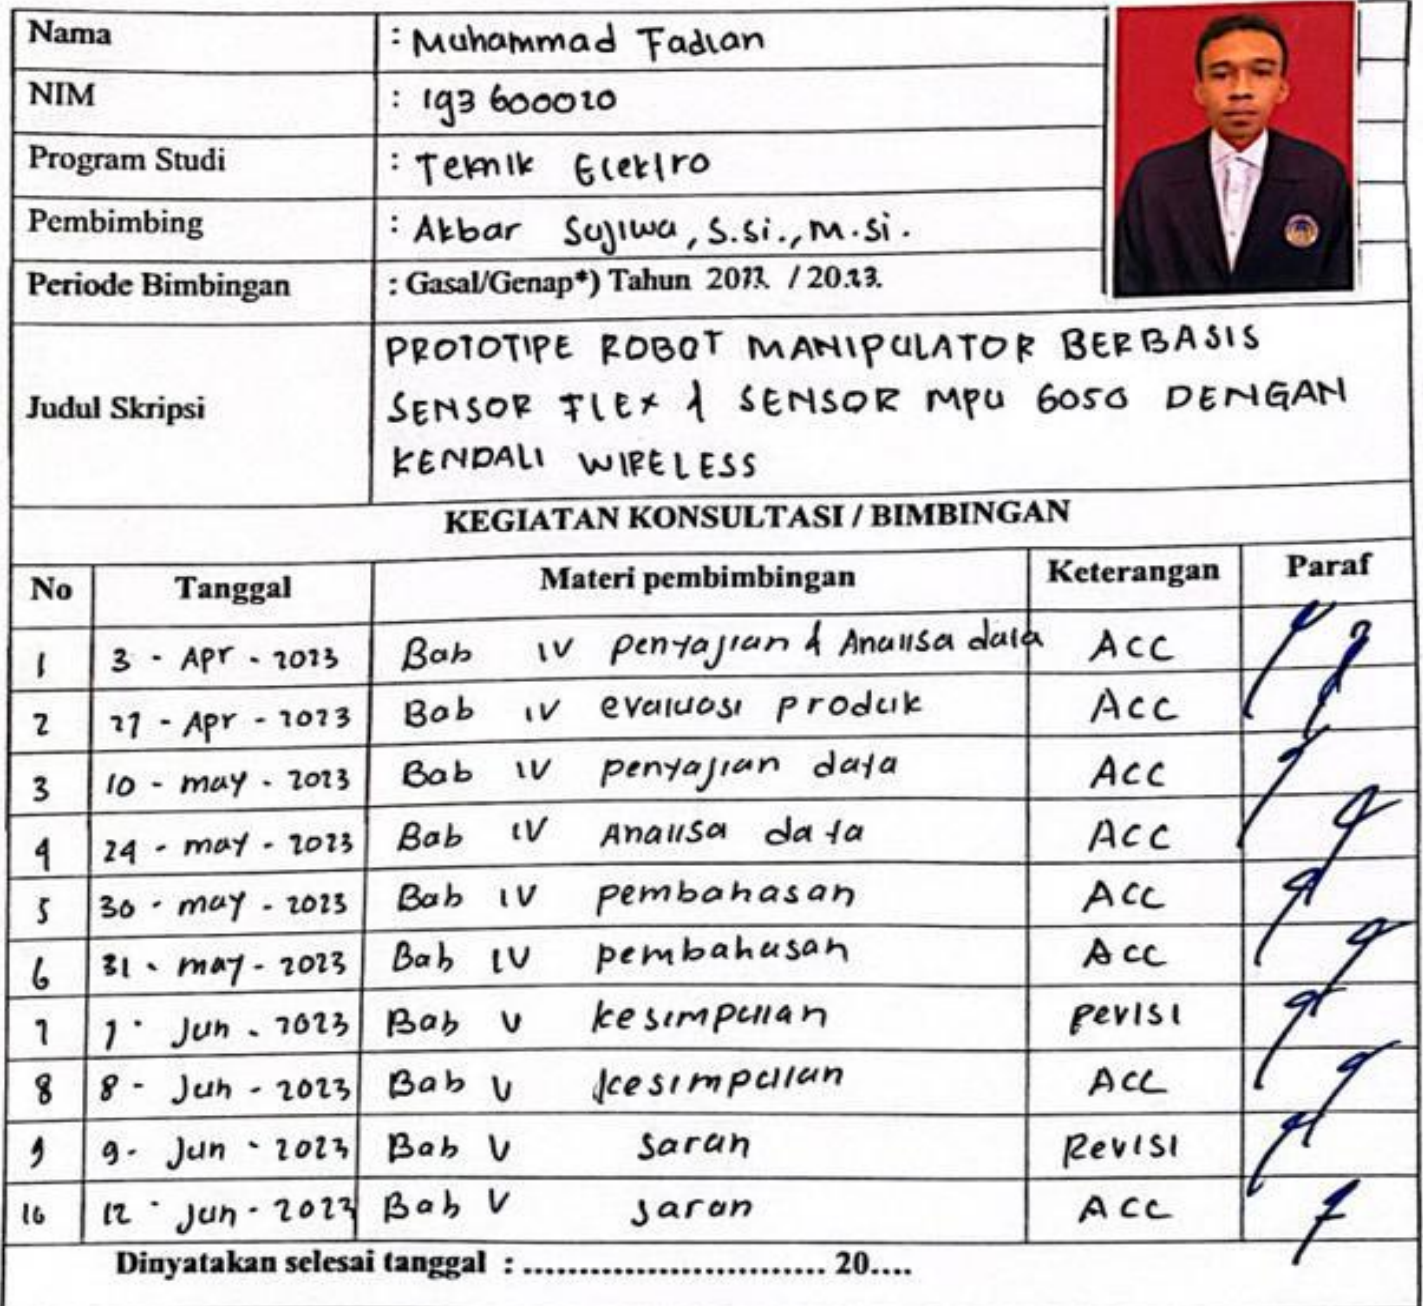 Nama : Muhammad Fadlan
NIM : 193600020
Program Studi : Teknik Elektro
Pembimbing : Akbar Sujiwa, S.si., M.si.
Periode Bimbingan : Gasal/Genap*) Tahun 2022 / 2023.
Judul Skripsi PROTOTIPE ROBOT MANIPULATOR BERBASIS
SENSOR FLEX & SENSOR MPU 6050 DENGAN
KENDALI WIRELESS
KEGIATAN KONSULTASI / BIMBINGAN
No Tanggal Materi pembimbingan Keterangan Paraf
1 3 - Apr - 2023 Bab IV penyajian & Analisa data ACC
2 27 - Apr - 2023 Bab IV evaluasi produk ACC
3 10 - may - 2023 Bab IV penyajian data ACC
4 24 - may - 2023 Bab IV Analisa data ACC
5 30 - may - 2023 Bab IV pembahasan ACC
6 31 - may - 2023 Bab IV pembahasan ACC
7 1 - Jun - 2023 Bab V kesimpulan revisi
8 8 - Jun - 2023 Bab V kesimpulan ACC
9 9 - Jun - 2023 Bab V saran Revisi
10 12 - Jun - 2023 Bab V saran ACC
Dinyatakan selesai tanggal : ........................... 20....